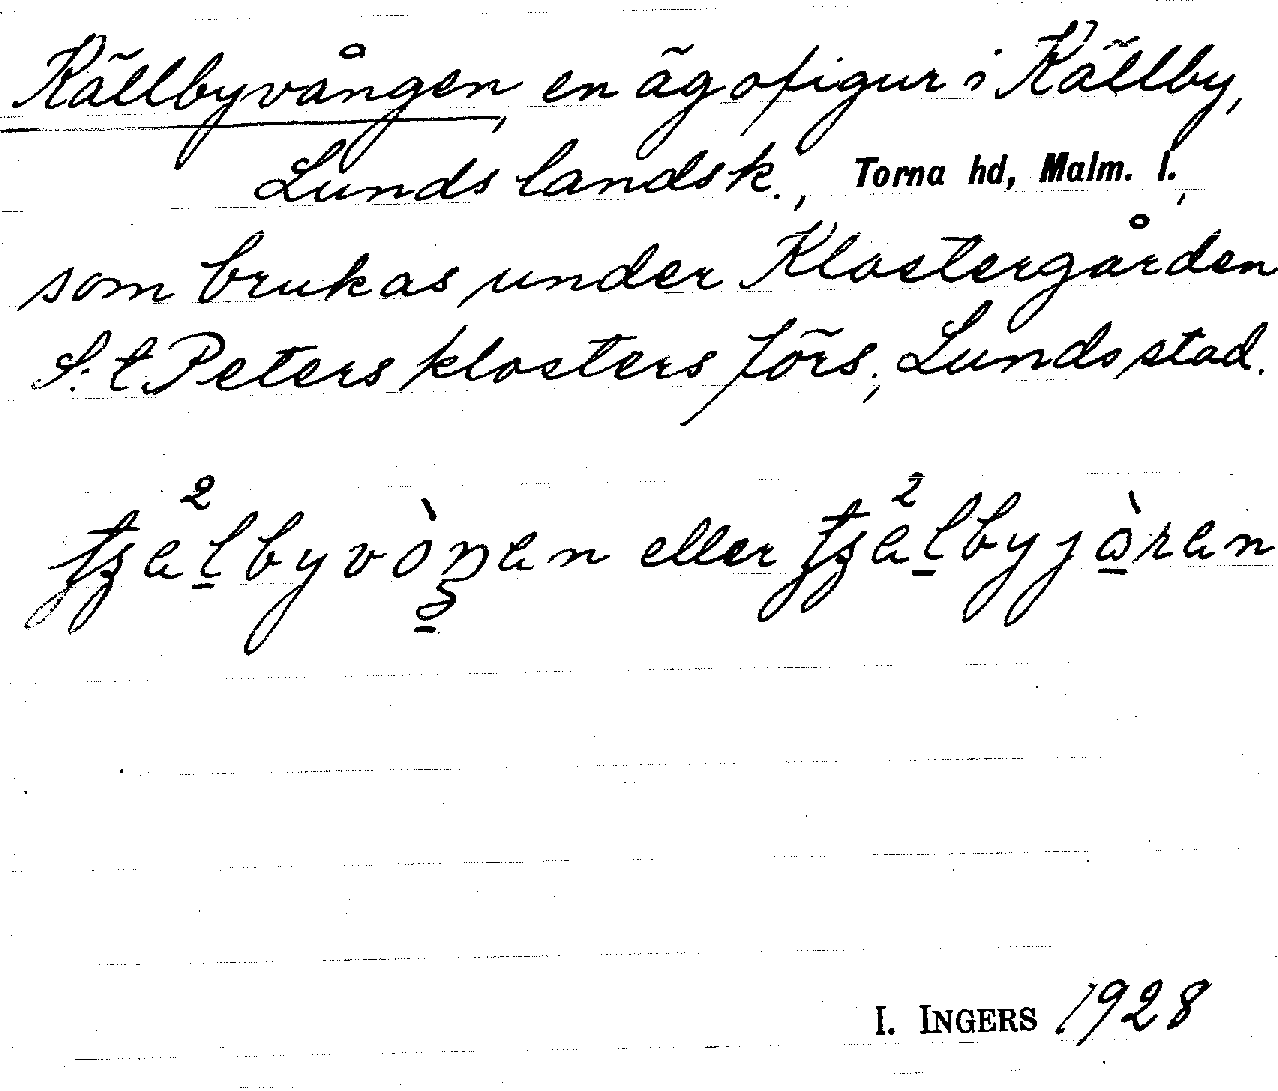 Källbyvången, en ägofigur i Källby,
Lunds landsk., Torna hd, Malm. l.,
som brukas under Klostergården
S:t Peters klosters förs., Lunds stad.
eller
I. INGERS 1928